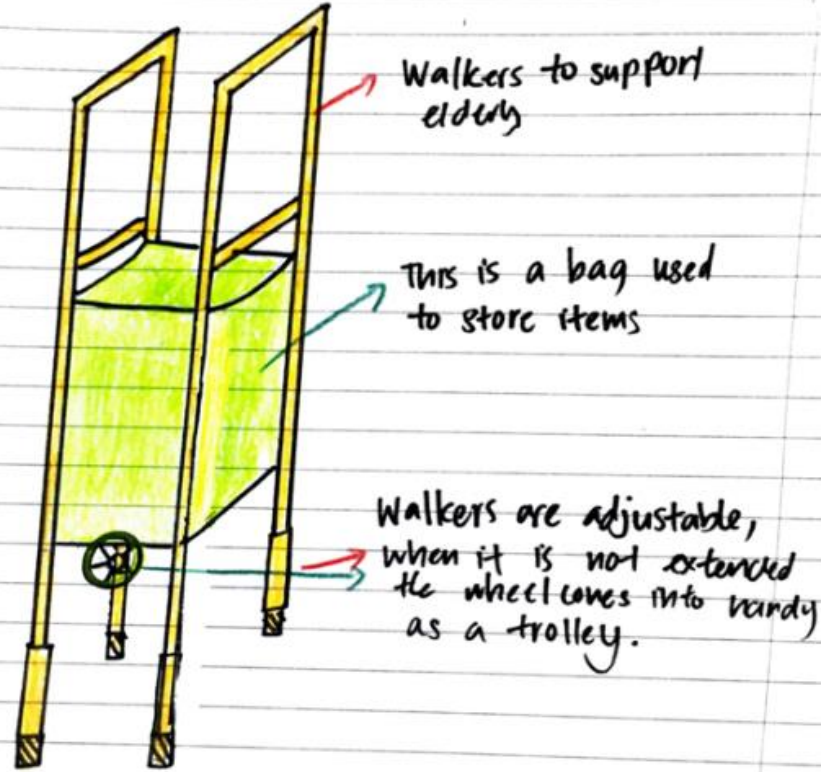 Walkers to support
elderly
This is a bag used
to store items
Walkers are adjustable,
when it is not extended
the wheel comes into handy
as a trolley.